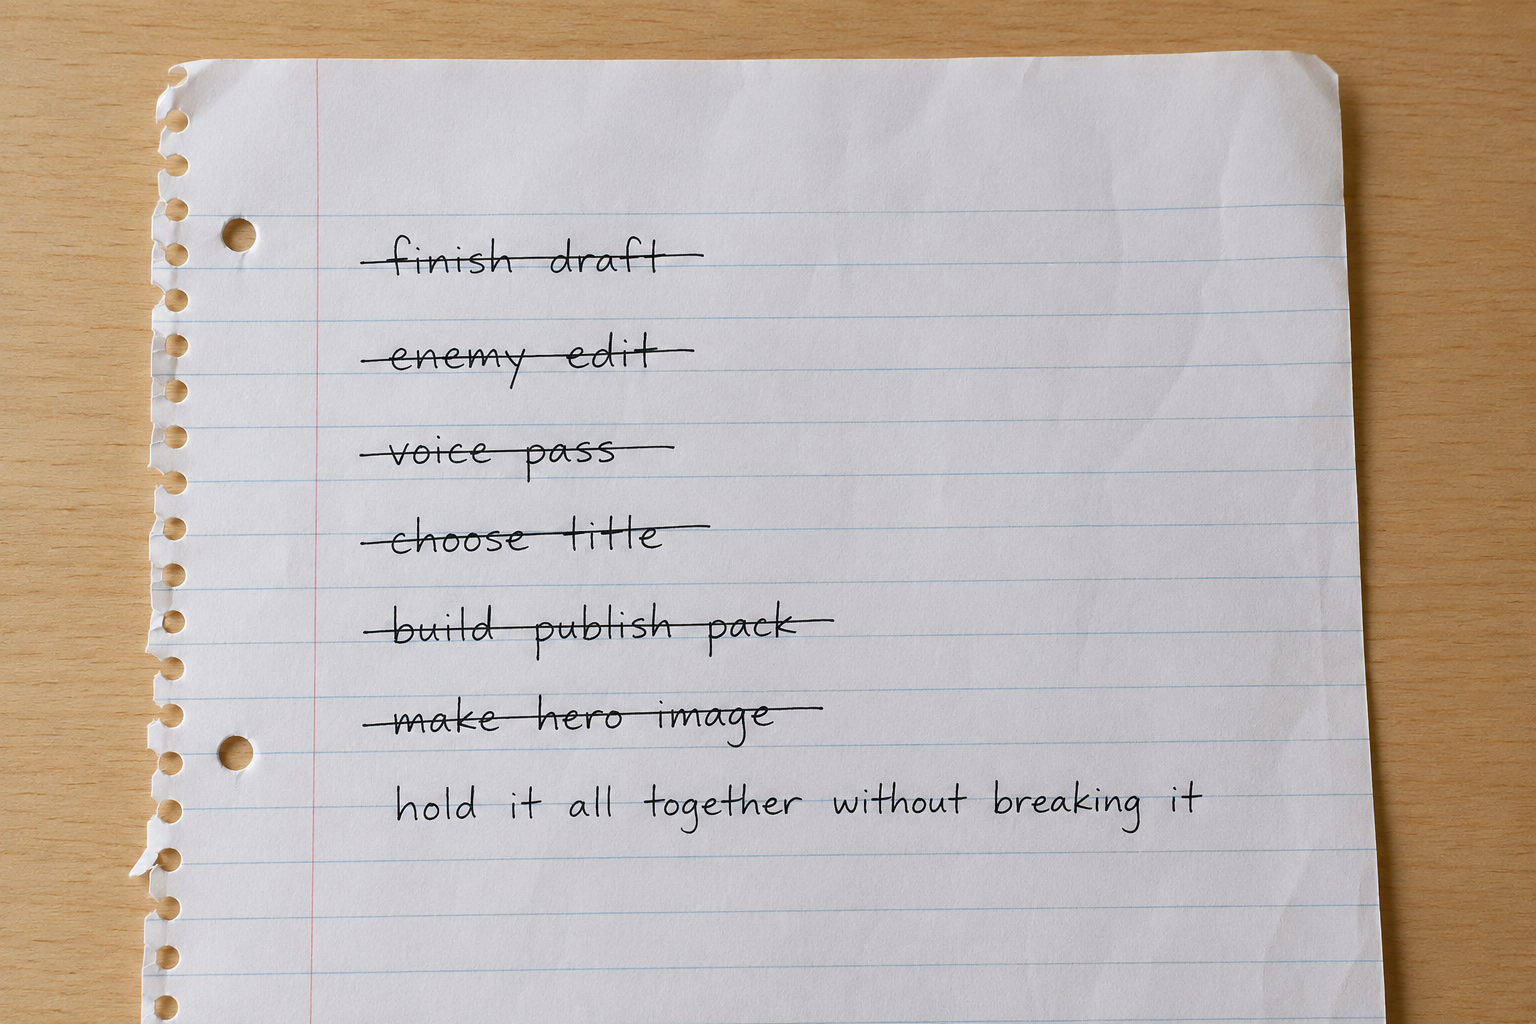 finish draft
enemy edit
voice pass
choose title
build publish pack
make hero image
hold it all together without breaking it